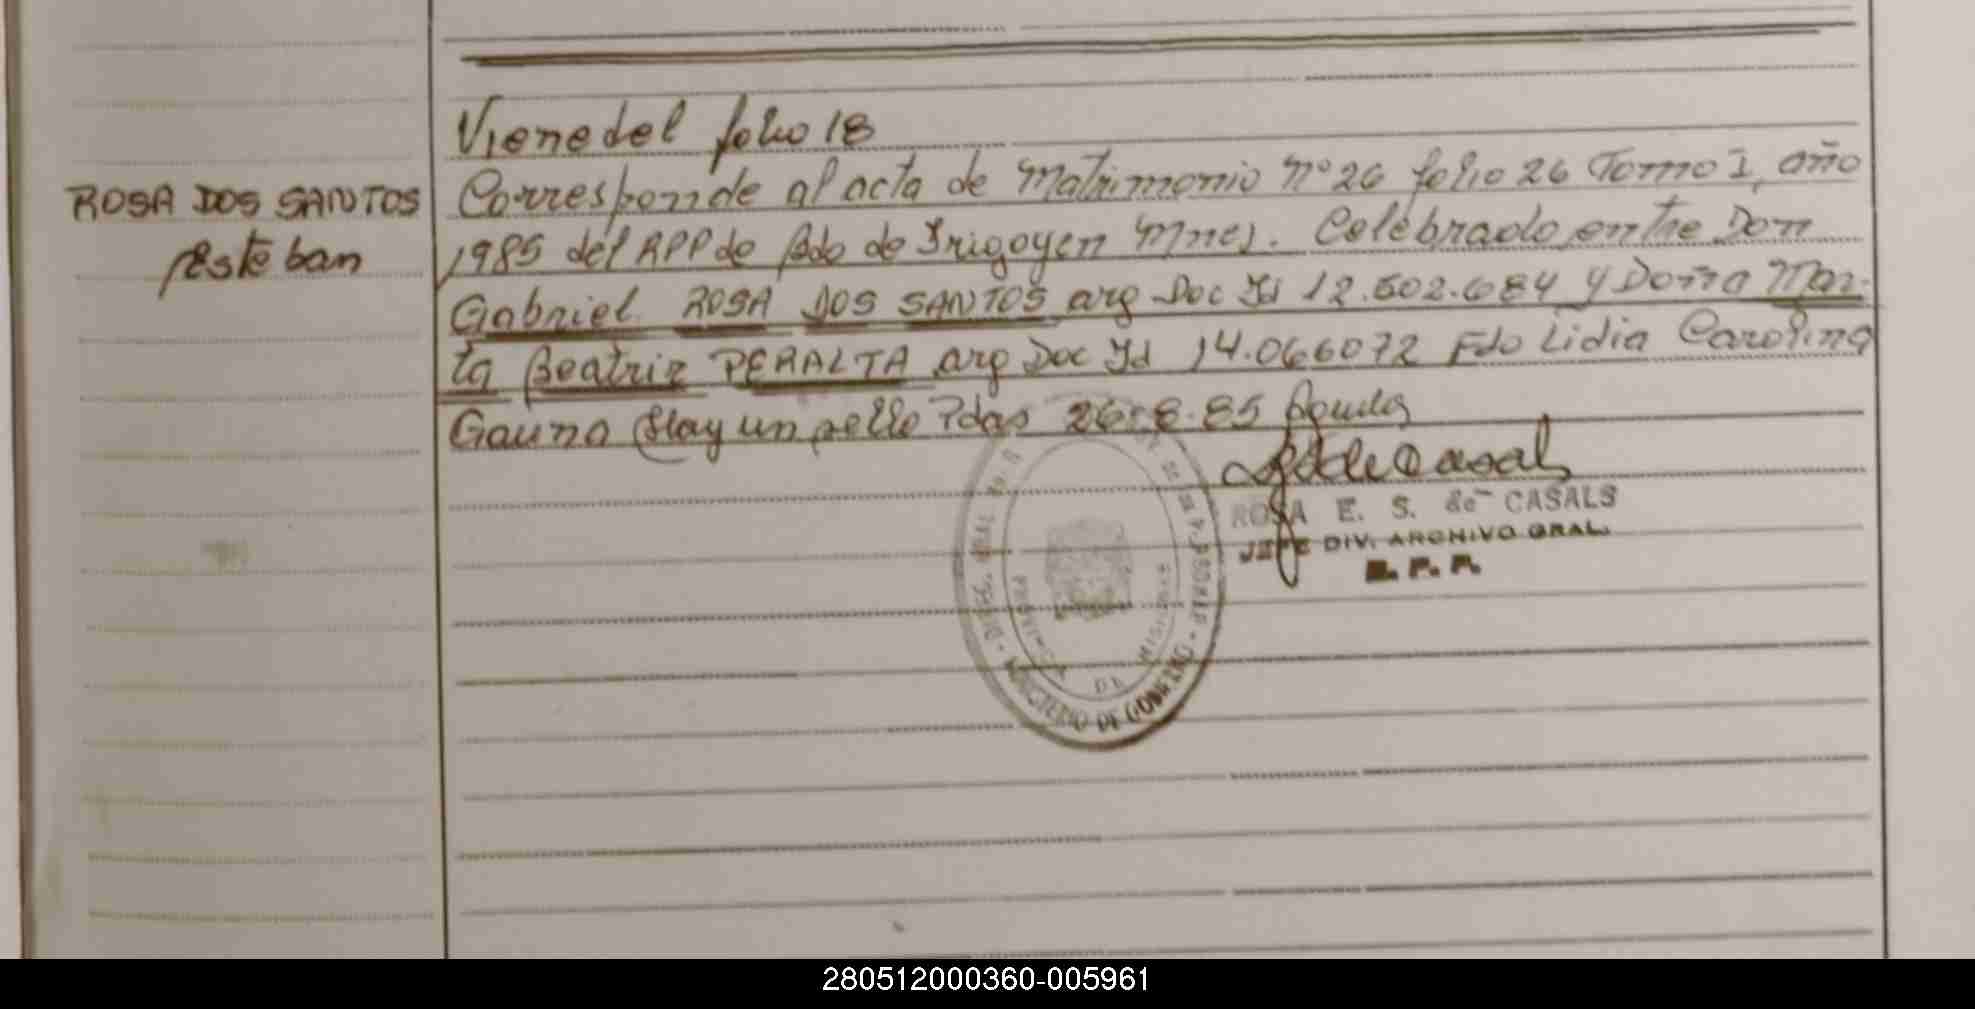 Viene del folio 18
ROSA DOS SANTOS
Esteban
Corresponde al acta de Matrimonio Nº 26 folio 26 Tomo I, año
1985 del RPP de Bdo de Irigoyen Mnes. Celebrado entre Don
Gabriel ROSA DOS SANTOS arg Doc Id 12.502.684 y Doña Mar-
ta Beatriz PERALTA arg Doc Id 14.066072 Fdo Lidia Carolina
Gauna Hay un sello Pdas 26-8-85
ROSA E. S. de CASALS
JEFE DIV. ARCHIVO GRAL.
R. P. P.
MINISTERIO DE GOBIERNO
PROVINCIA DE MISIONES
280512000360-005961